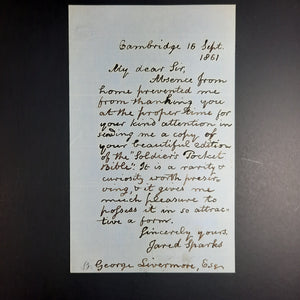 Cambridge 16 Sept.
1861
My dear Sir,
Absence from
home prevented me
from thanking you
at the proper time for
your kind attention in
sending me a copy of
your beautiful edition
of the "Soldier's Pocket
Bible". It is a rarity &
curiosity worth preser
ving, & it gives me
much pleasure to
possess it in so attrac-
tive a form.
Sincerely yours,
Jared Sparks
George Livermore, Esqr